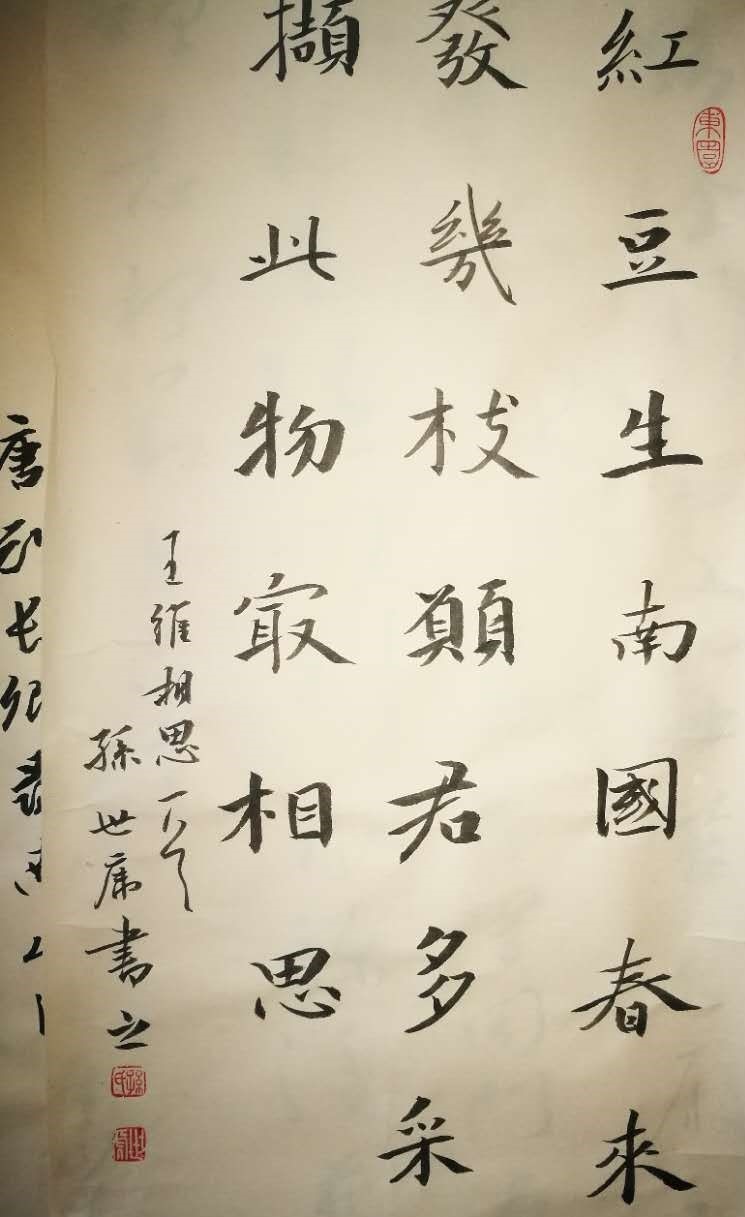 紅豆生南國春來
發幾枝願君多采
擷此物㝡相思
王維相思一首
孫世書之
唐长卿